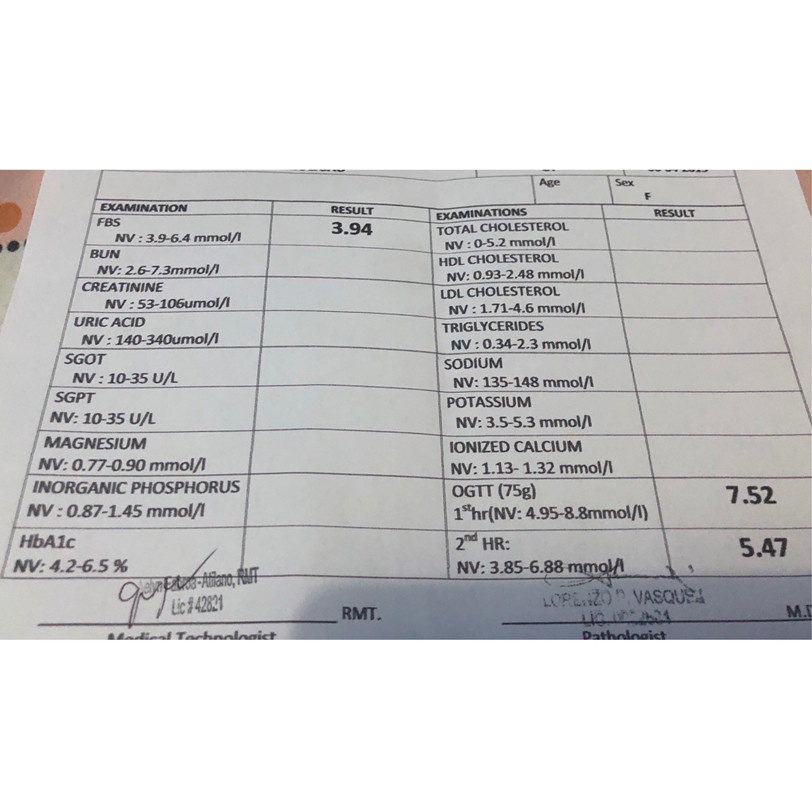 Age Sex
F
EXAMINATION RESULT EXAMINATIONS RESULT
FBS
NV : 3.9-6.4 mmol/l
3.94
TOTAL CHOLESTEROL
NV : 0-5.2 mmol/l
BUN
NV: 2.6-7.3mmol/l
HDL CHOLESTEROL
NV: 0.93-2.48 mmol/l
CREATININE
NV : 53-106umol/l
LDL CHOLESTEROL
NV : 1.71-4.6 mmol/l
URIC ACID
NV : 140-340umol/l
TRIGLYCERIDES
NV : 0.34-2.3 mmol/l
SGOT
NV : 10-35 U/L
SODIUM
NV: 135-148 mmol/l
SGPT
NV: 10-35 U/L
POTASSIUM
NV: 3.5-5.3 mmol/l
MAGNESIUM
NV: 0.77-0.90 mmol/l
IONIZED CALCIUM
NV: 1.13- 1.32 mmol/l
INORGANIC PHOSPHORUS
NV : 0.87-1.45 mmol/l
OGTT (75g)
1sthr(NV: 4.95-8.8mmol/l)
7.52
HbA1c
NV: 4.2-6.5 %
2nd HR:
NV: 3.85-6.88 mmol/l
5.47
RMT
Lic # 42821
RMT.
LORENZO P. VASQUEZ
M.D
Medical Technologist
Pathologist